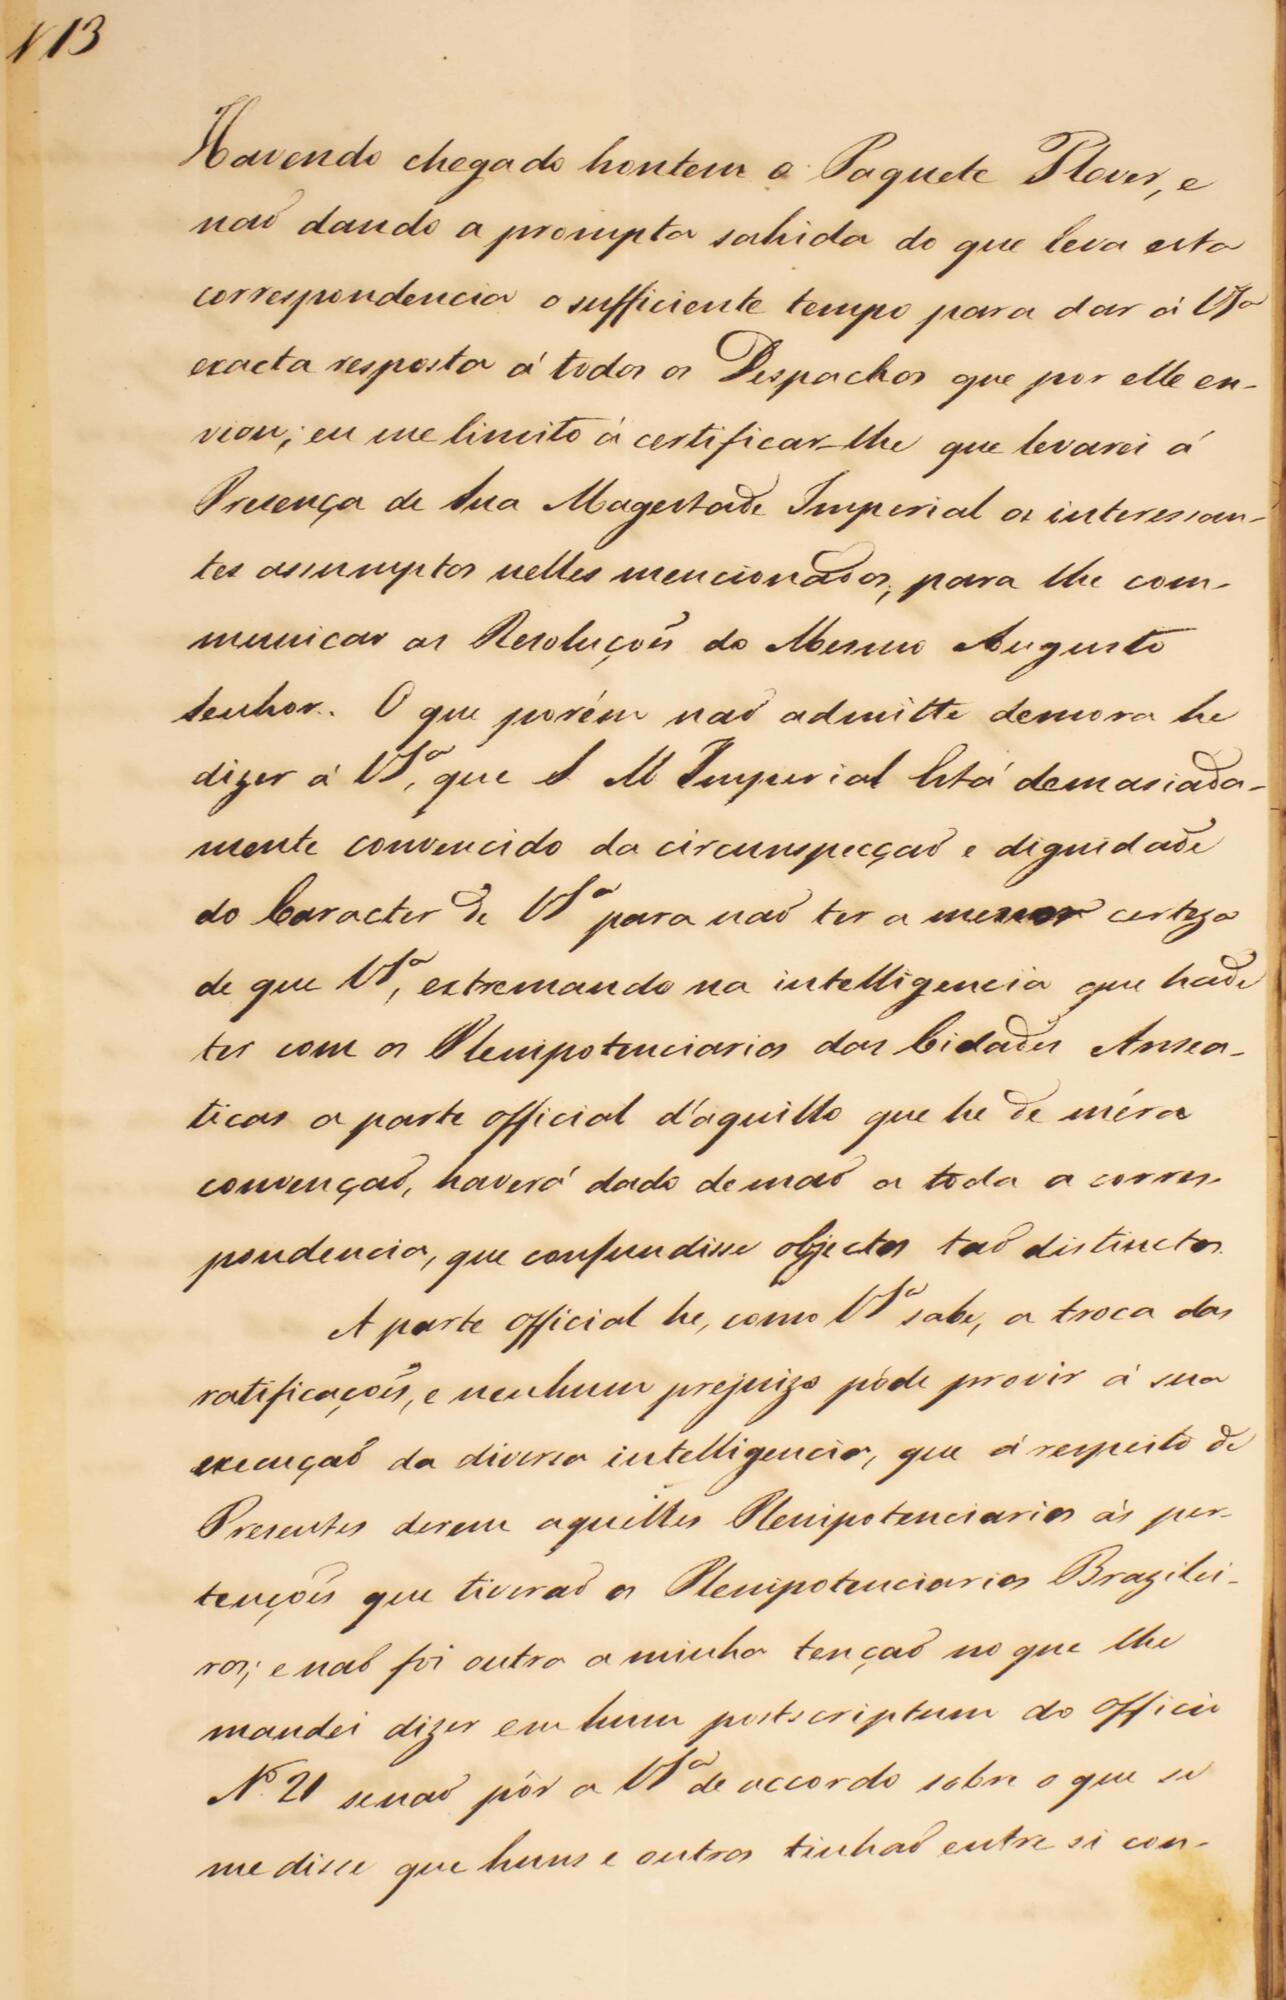 N 13
Havendo chegado hontem o Paquete Plover, e
naõ dando a prompta sahida do que leva esta
correspondencia o sufficiente tempo para dar á VSª
exacta resposta á todos os Despachos que por elle en-
viou; eu me limito á certificar-lhe que levarei á
Presença de Sua Magestade Imperial os interessan-
tes assumptos nelles mencionados, para lhe com-
municar as Resoluçoẽs do Mesmo Augusto
Senhor. O que porém naõ admitte demora he
dizer á VSª, que S M Imperial Está demasiada-
mente convencido da circunspecçaõ e dignidade
do Caracter de VSª para naõ ter a menor certeza
de que VSª, extremando na intelligencia que hade
ter com os Plenipotenciarios das Cidades Ansea-
ticas a parte official d'aquillo que he de méra
convençaõ, haverá dado de maõ a toda a corres-
pondencia, que confundisse objectos taõ distinctos.
A parte official he, como VSª sabe, a troca das
ratificaçoẽs, e nenhum prejuizo póde provir á sua
execuçaõ da diversa intelligencia, que á respeito de
Presentes derem aquelles Plenipotenciarios ás per-
tençoẽs que tiveraõ os Plenipotenciarios Brazilei-
ros; e naõ foi outra a minha tençaõ no que lhe
mandei dizer em hum postscriptum do officio
Nº 21 senaõ pôr a VSª de accordo sobre o que se
me disse que huns e outros tinhaõ entre si con-